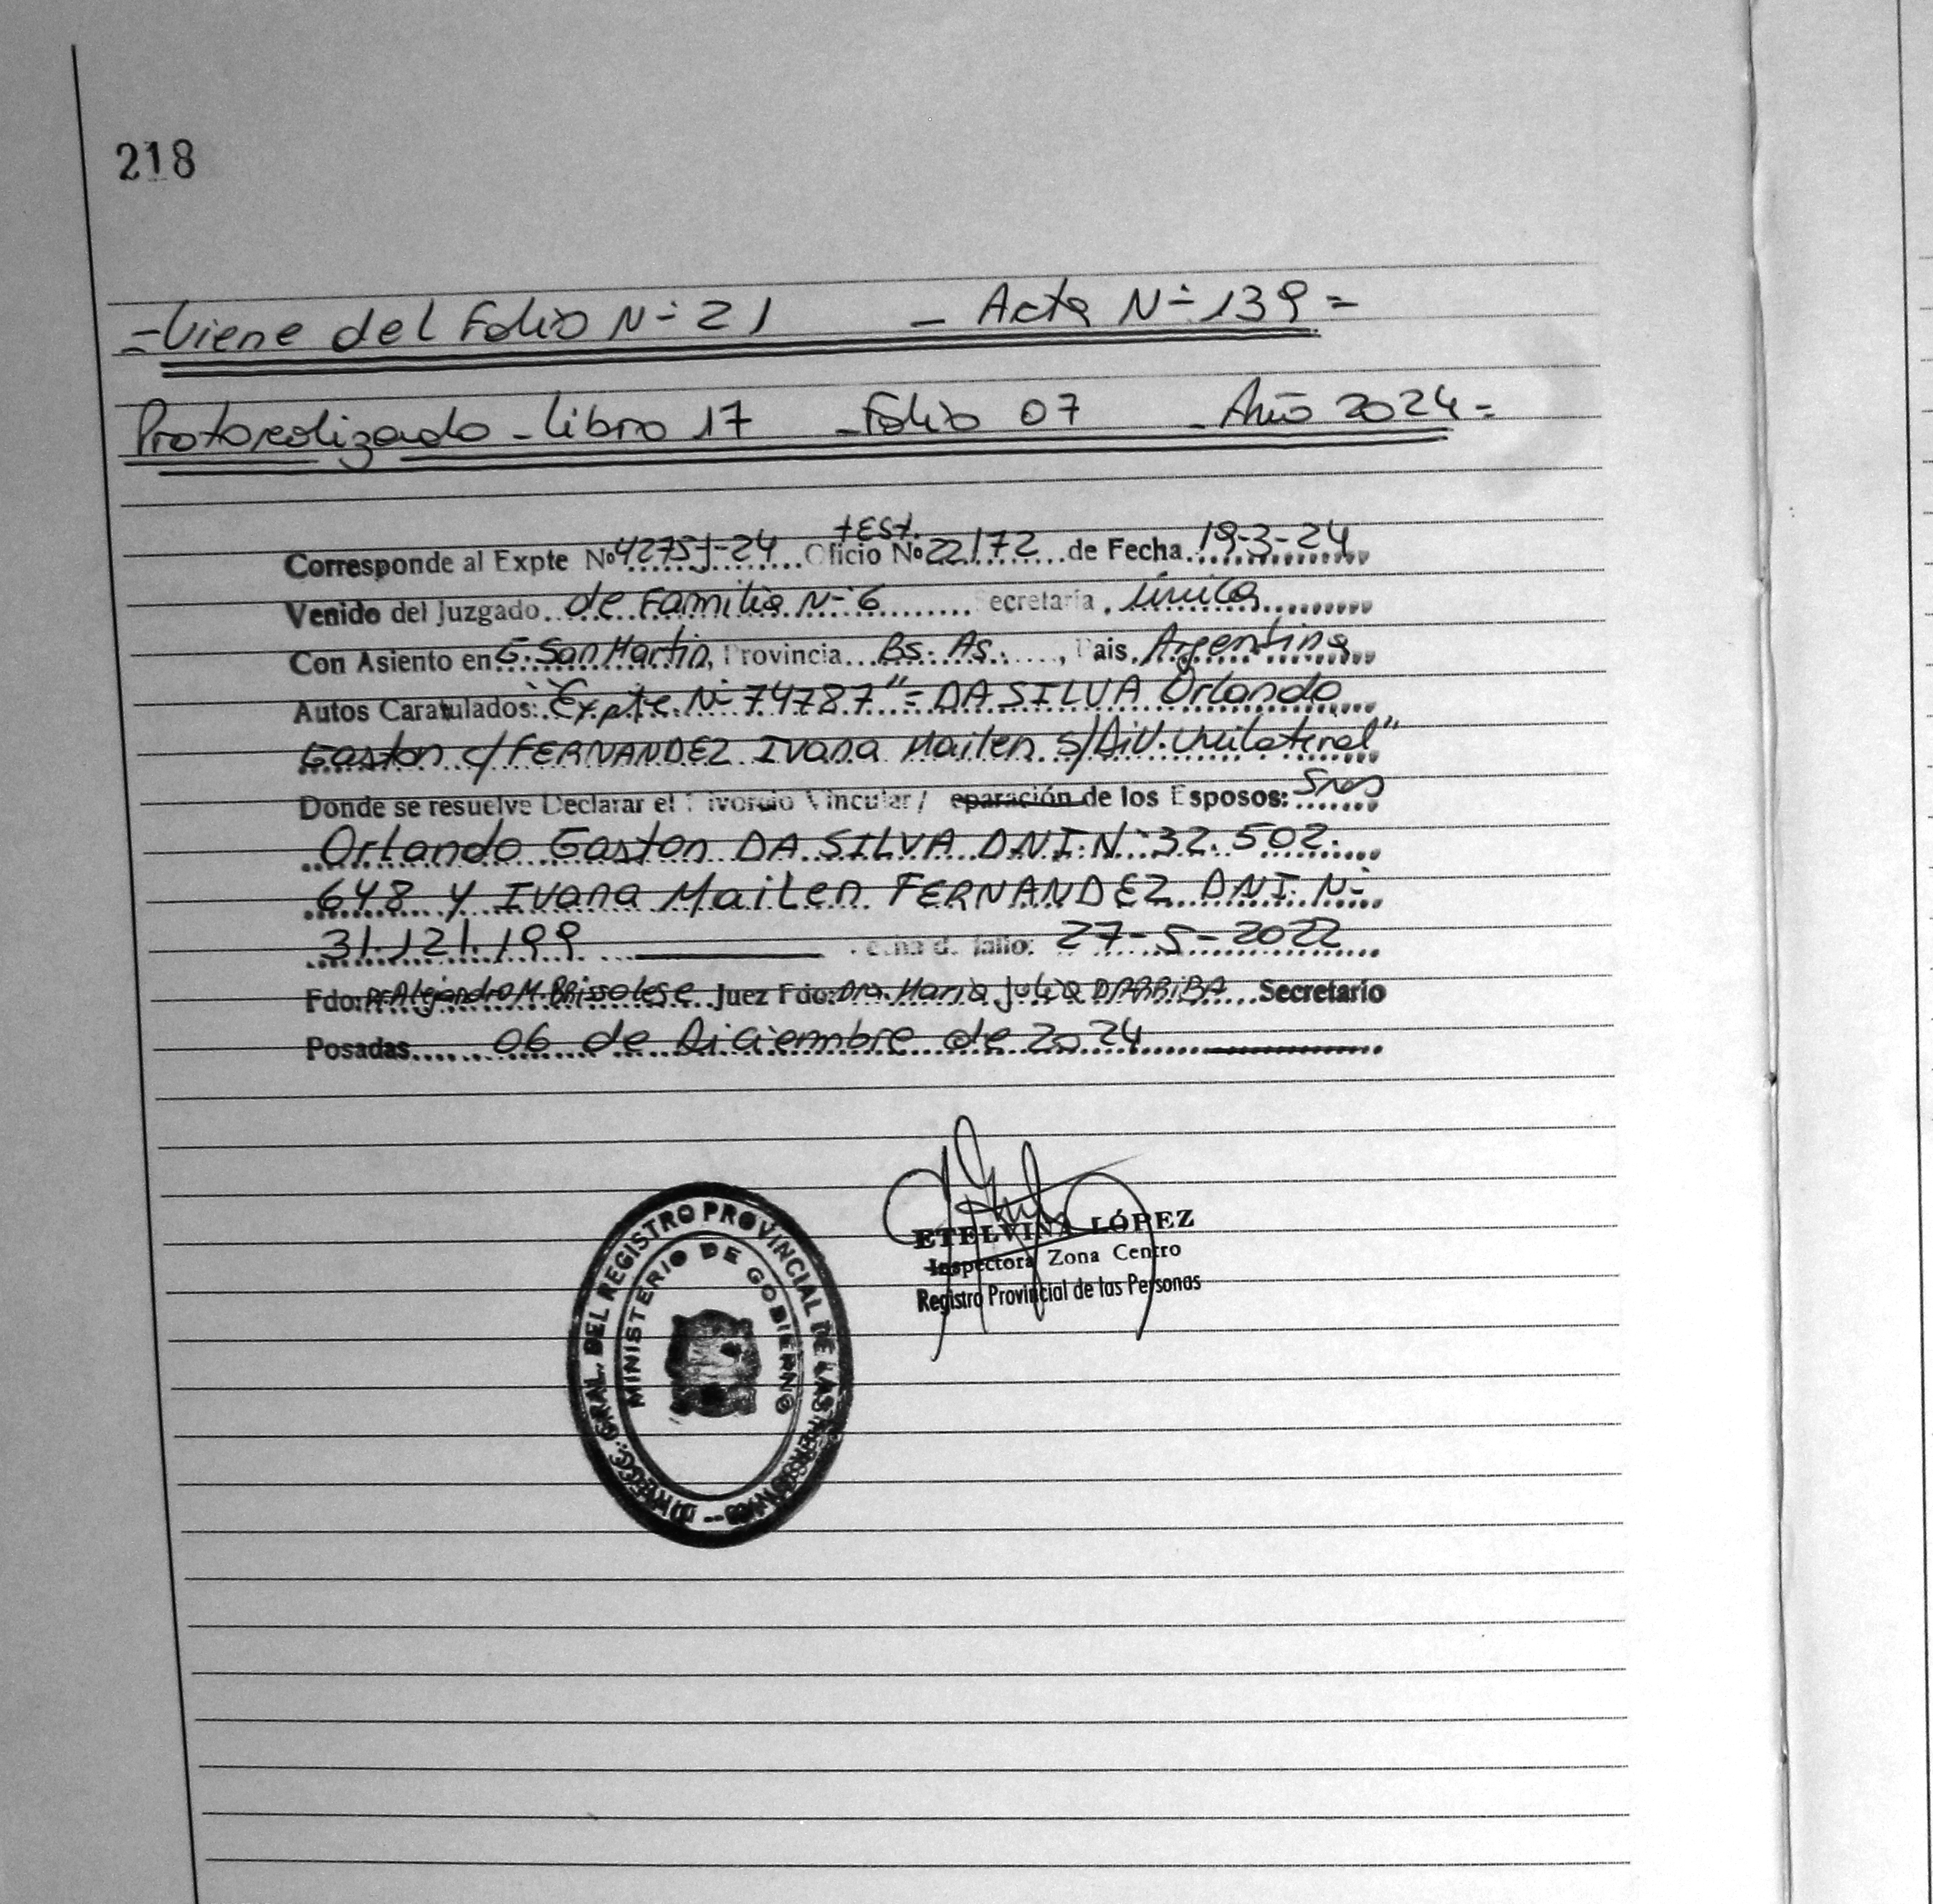 218
=Viene del Folio N-° 21 - Acta N-° 139=
Protocolizado - Libro 17 - Folio 07 - Año 2024=
test.
Corresponde al Expte Nº 4275-J-24 Oficio Nº 22172 de Fecha 19-3-24
Venido del Juzgado de Familia N-° 6 Secretaría única
Con Asiento en G. San Martin, Provincia Bs. As., Pais Argentina
Autos Caratulados: "Expte. N-° 74787"= DA SILVA Orlando
Gaston c/ FERNANDEZ Ivana Mailen S/Div. Unilateral"
Donde se resuelve Declarar el Divorcio Vincular/ eparación de los Esposos: Sres
Orlando Gaston DA SILVA D.N.I. N-° 32.502.
648 y IVana Mailen FERNANDEZ DNI. N-°
31.121.199 Fecha d. fallo: 27-5-2022
Fdo: Dr. Alejandro M. Brissolese Juez Fdo: Dra. Maria Julia DARRIBA Secretario
Posadas 06 de Diciembre de 2024
ETELVINA LÓPEZ
Inspectora Zona Centro
Registro Provincial de las Personas
DIRECC. GRAL. DEL REGISTRO PROVINCIAL DE LAS PERSONAS
MINISTERIO DE GOBIERNO